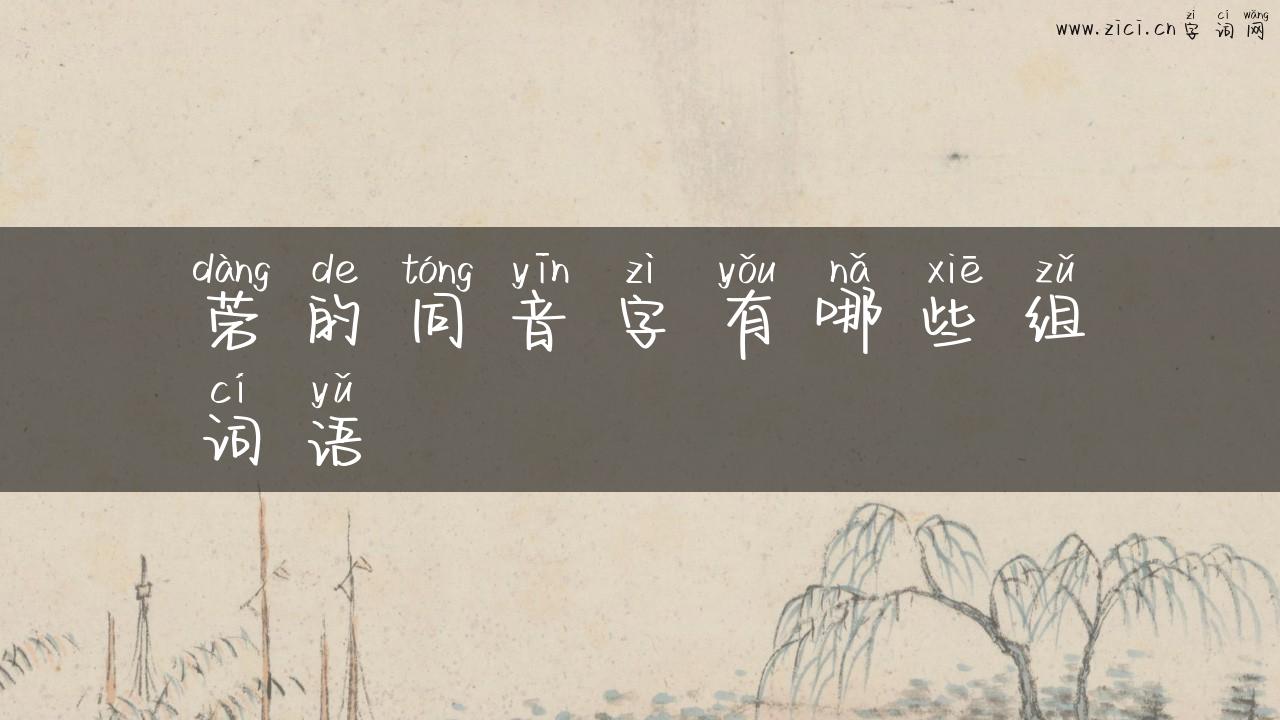 zì cí wǎng
www.zici.cn 字词网
dàng de tóng yīn zì yǒu nǎ xiē zǔ
菪的同音字有哪些组
cí yǔ
词语